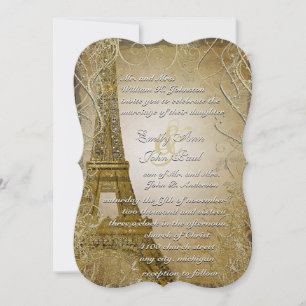 Mr. and Mrs.
William H. Johnston
invite you to celebrate the
marriage of their daughter
Emily Ann
&
John Paul
son of Mr. and Mrs.
John D. Anderson
saturday the fifth of november
two thousand and sixteen
three o'clock in the afternoon
church of Christ
4100 church street
any city, michigan
reception to follow